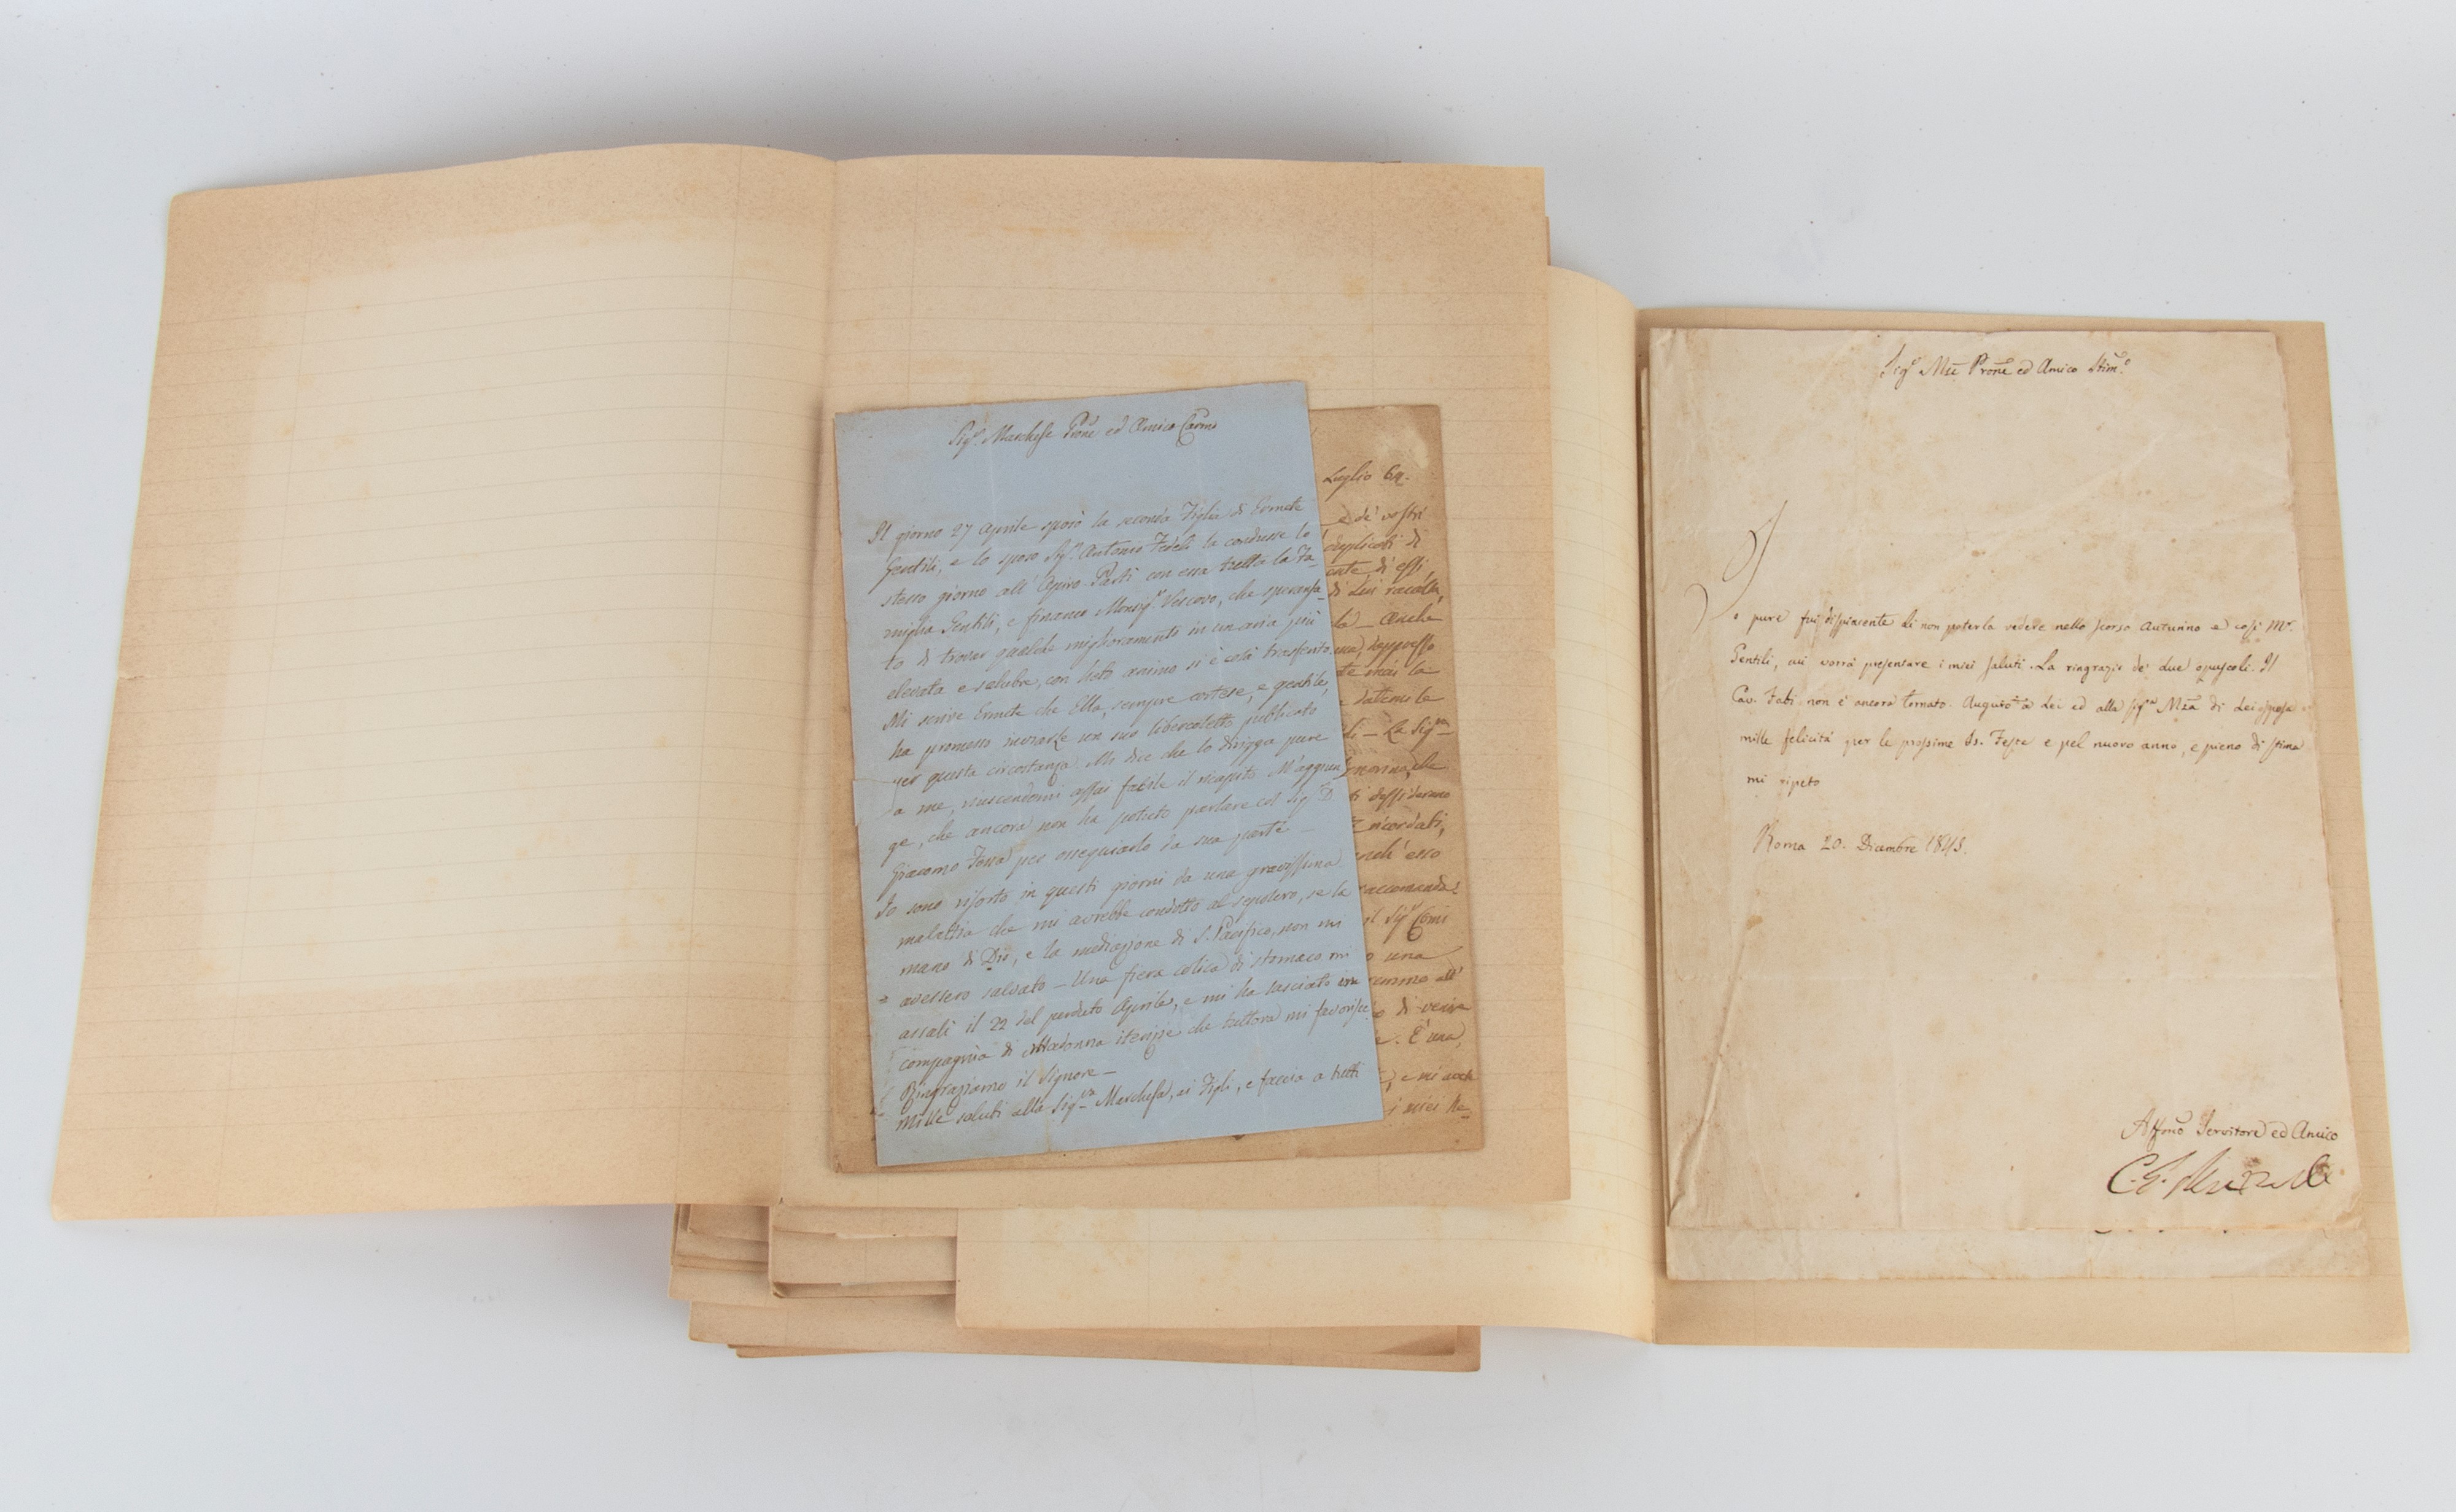 Sigr. Marchese Prone ed Amico Carmo
Il giorno 27 Aprile sposò la seconda Figlia di Ermete
Gentili, e lo sposo Sigr. Antonio Fedeli la condusse lo
stesso giorno all' Apiro. Partì con essa tutta la Fa-
miglia Gentili, e financo Monsigr. Vescovo, che speranza-
to di trovar qualche miglioramento in un aria più
elevata e salubre, con lieto animo si è colà trasferito.
Mi scrive Ermete che Ella, sempre cortese, e gentile,
ha promesso inviarle un suo libercoletto pubblicato
per questa circostanza. Mi dice che lo dirigga pure
a me, riuscendomi assai facile il recapito. M'aggiun
ge, che ancora non ha potuto parlare col Sigr. D.
Giacomo per ossequiarlo da sua parte —
Io sono risorto in questi giorni da una gravissima
malattia che mi avrebbe condotto al sepolcro, se la
mano di Dio, e la mediazione di S. Pacifico, non mi
avessero salvato — Una fiera colica di stomaco mi
assalì il 22 del perduto Aprile, e mi ha lasciato in
compagnia di Madonna iterizie che tuttora mi favorisce.
Ringraziamo il Signore —
Mille saluti alla Sigra Marchesa, ai Figli, e faccia a tutti
Luglio 64.
e de' vostri
duplicati di
di essi,
di Lui raccolta,
Anche
dappresso
mai la
datemele
La Sigra
che
ti desiderano
ricordati,
anch' esso
raccomanda:
il Sigr Comi
o una
remmo all'
di venire
. È una,
, e mi
i miei Ne-
Sigr Mse Prone ed Amico Stimo
Io pure fui dispiacente di non poterla vedere nello scorso Autunno e così Mr.
Gentili, cui vorrà presentare i miei saluti. La ringrazio de' due opuscoli. Il
Cav. Fabi non è ancora tornato. Auguro a Lei ed alla Sigra Msa di Lei sposa
mille felicità per le prossime Ss. Feste e pel nuovo anno, e pieno di stima
mi ripeto
Roma 20. Dicembre 1843.
Affmo Servitore ed Amico